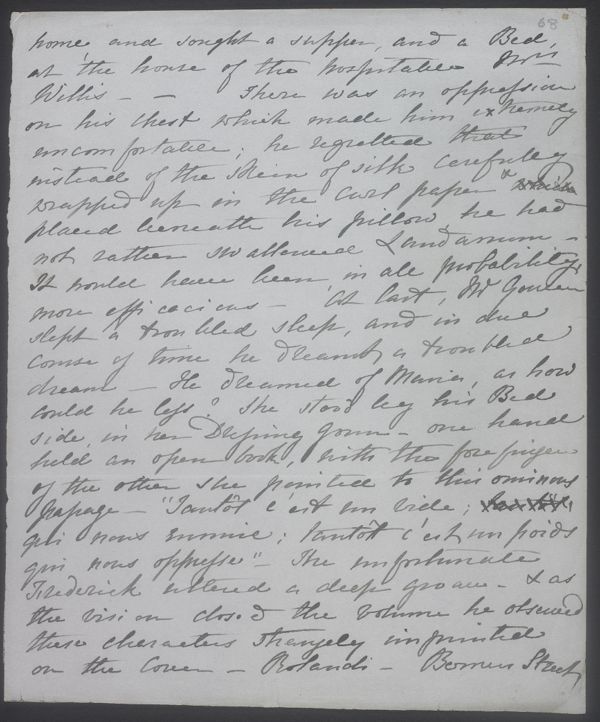 68
home, and sought a supper, and a Bed,
at the house of the hospitable Mrs
Willis — — There was an oppression
on his chest which made him extremely
uncomfortable; he regretted that
instead of the skein of silk carefully
wrapped up in the curl paper &
placed beneath his pillow he had
not rather swallowed Laudanum —
It would have been in all probability,
more efficacious — At last, Mr Gowen
slept a troubled sleep, and in due
course of time he dreamt a troubled
dream — He dreamed of Maria, as how
could he less? She stood by his Bed
side, in her Dressing gown — one hand
held an open book, with the fore finger
of the other she pointed to this ominous
passage — "Tantôt c'est un vide;
qui nous ennuie; tantôt c'est un poids
qui nous oppresse" — The unfortunate
Frederick uttered a deep groan — & as
the vision closed the volume he observed
these characters strangely imprinted
on the Cover — Rolandi — Berners Street